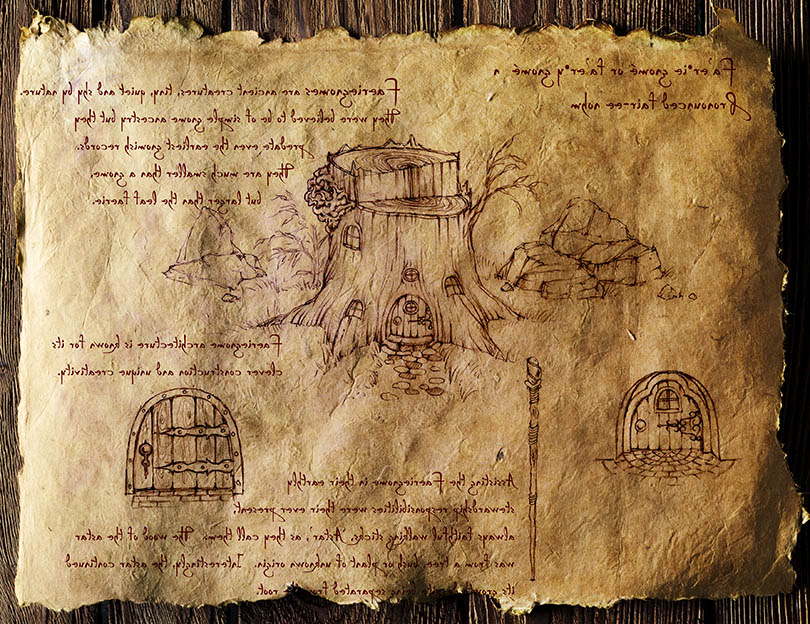 Fa'er•ie gnomé or fa'er•y gnomé n
Pronounced fair-ee nohm
Faeriegnomes are ancient creatures, tiny, quiet and shy by nature.
They were believed to be of simple gnome ancestry but they
predate even the earliest gnomish records.
They are much smaller than a gnome,
but larger than the leaf faerie.
Faeriegnome architecture is known for its
clever construction and unique creativity.
Assisting the Faeriegnome in their earthly
stewardship responsibilities were their ever present,
always faithful walking sticks, 'Astar', as they call them. The wood of the astar
was from a tree, bush or plant of unknown origin. Interestingly, the astar continued
its growth despite being separated from the root.